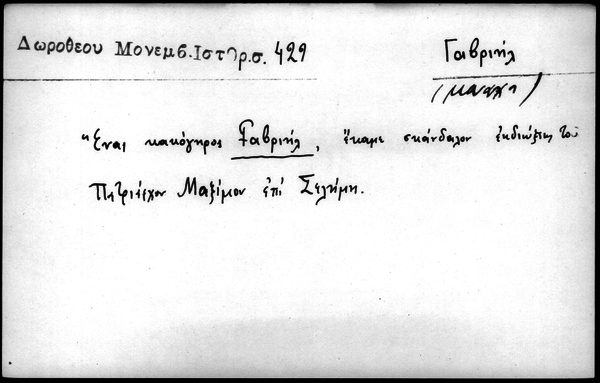 Δωροθεου Μονεμβ. Ιστορ. σ. 429
Γαβριήλ
"Ένας κακόγηρος Γαβριήλ, έκαμε σκάνδαλον εκδιώξεις του
Πατριάρχου Μαξίμου επί Σελήμη.